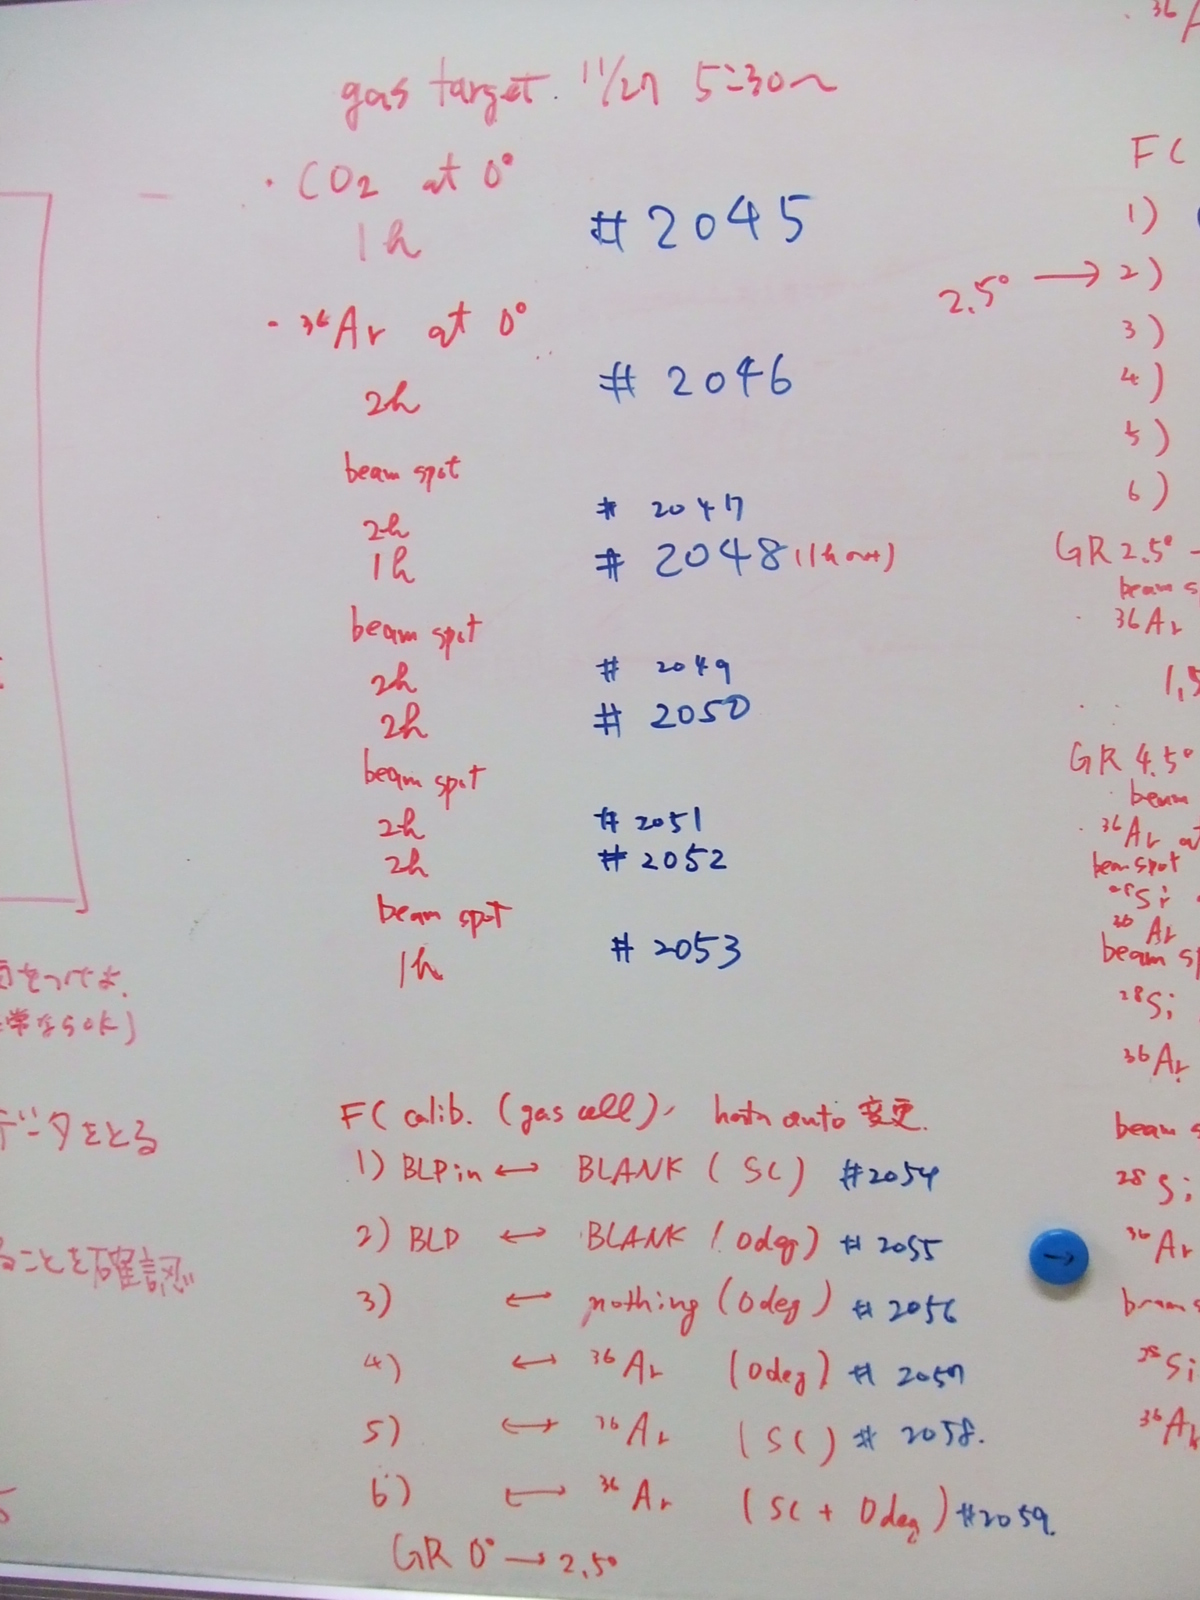 gas target. 11/27 5:30〜
・CO2 at 0°
1h #2045
・36Ar at 0°
2h #2046
beam spot
2h #2047
1h #2048 (1h out)
beam spot
2h #2049
2h #2050
beam spot
2h #2051
2h #2052
beam spot
1h #2053
FC calib. (gas cell), auto 変更.
1) BLPin ↔ BLANK (SC) #2054
2) BLP ↔ BLANK (0deg) #2055
3) ↔ nothing (0deg) #2056
4) ↔ 36Ar (0deg) #2057
5) ↔ 36Ar (SC) #2058.
6) ↔ 36Ar (SC + 0deg) #2059.
GR 0° → 2.5°
をつけよ.
常ならOK)
データをとる
ることを確認
5
・36A
FC
1)
2.5° → 2)
3)
4)
5)
6)
GR 2.5°
beam s
・36Ar
1,5
GR 4.5°
beam
・36Ar at
beam spot
28Si
36Ar
beam sp
28Si
36Ar
beam s
28Si
→
36Ar
beam s
28Si
36Ar